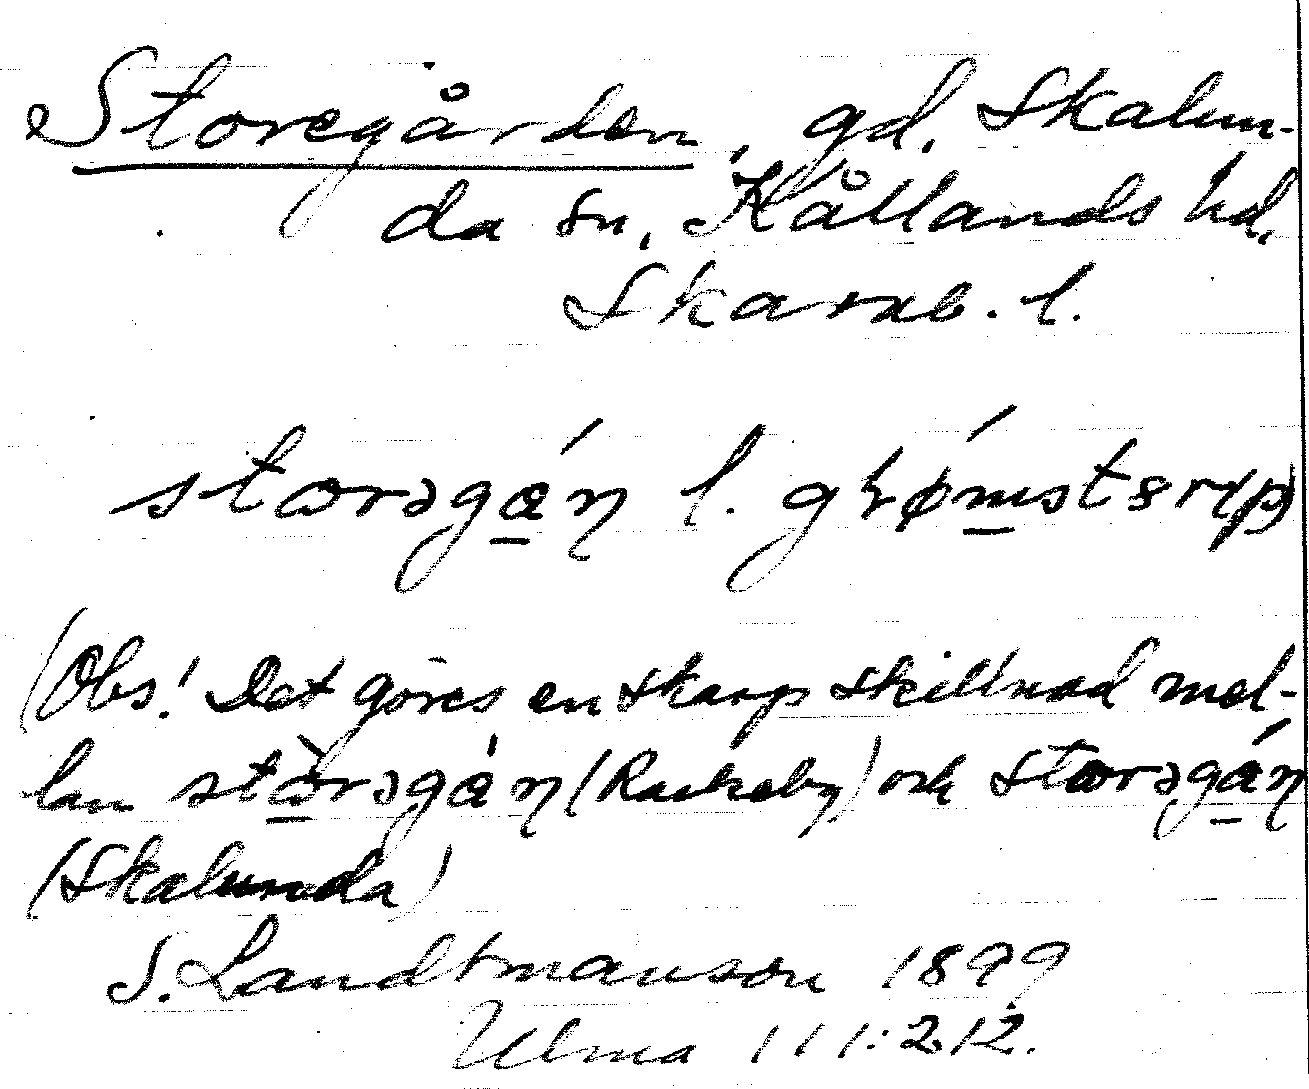 Storegården, gd. Skalun-
da sn, Kållands hd.
Skarab. l.
storəgá̱ŋ l.
(Obs! Det göres en skarp skillnad mel-
lan stò̱rəgàŋ (Rackeby) och storəgá̱ŋ
(Skalunda)
S. Landtmanson 1899
Ulma 111:212.